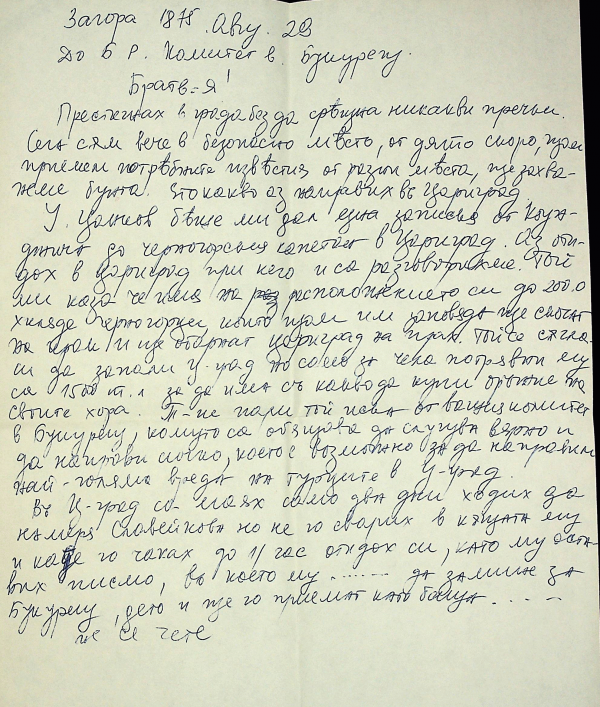 Загора 1875 Авгу. 29
До Б Р. Комитет в. Букурещ.
Братв-я!
Престигнах в града без да срѣщна никакви пречки.
Сега съм вече в безопасно мѣсто, от дято скоро, щом
приемем потрѣбните извѣстия от разни мѣста, ще захва-
неме бунта. Ето какво аз направих въ Цариград.
У. Ценков бѣше ми дал една записка от
до черногорския капетан в Цариград. Аз оти-
дох в Цариград при него и са разговорихме. Той
ми каза че има на расположението си до 2000
хиляде Черногорци, които щом им заповяда ще скочат
на крак и ще отърват Цариград на прах. Той се съгла-
си да запали Ц-град но само за чека потрявти му
са 1500 т.л. за да има съ какво да купи оръжие на
своите хора. Т-не пали той иска от вашия комитет
в Букурещ, комуто са обещава да слугува вярно и
да направи сичко, което е возможно за да направим
най-голяма вреда на турците в Ц-град.
Въ Ц-град са маях само два дни ходих да
намеря Славейкова но не го сварих в къщата му
и каде го чаках до 11 час отидох си, като му оста-
вих писмо, въ което му ....... да замине за
Букурещ, дето и ще го приемат като баща ....
не се чете